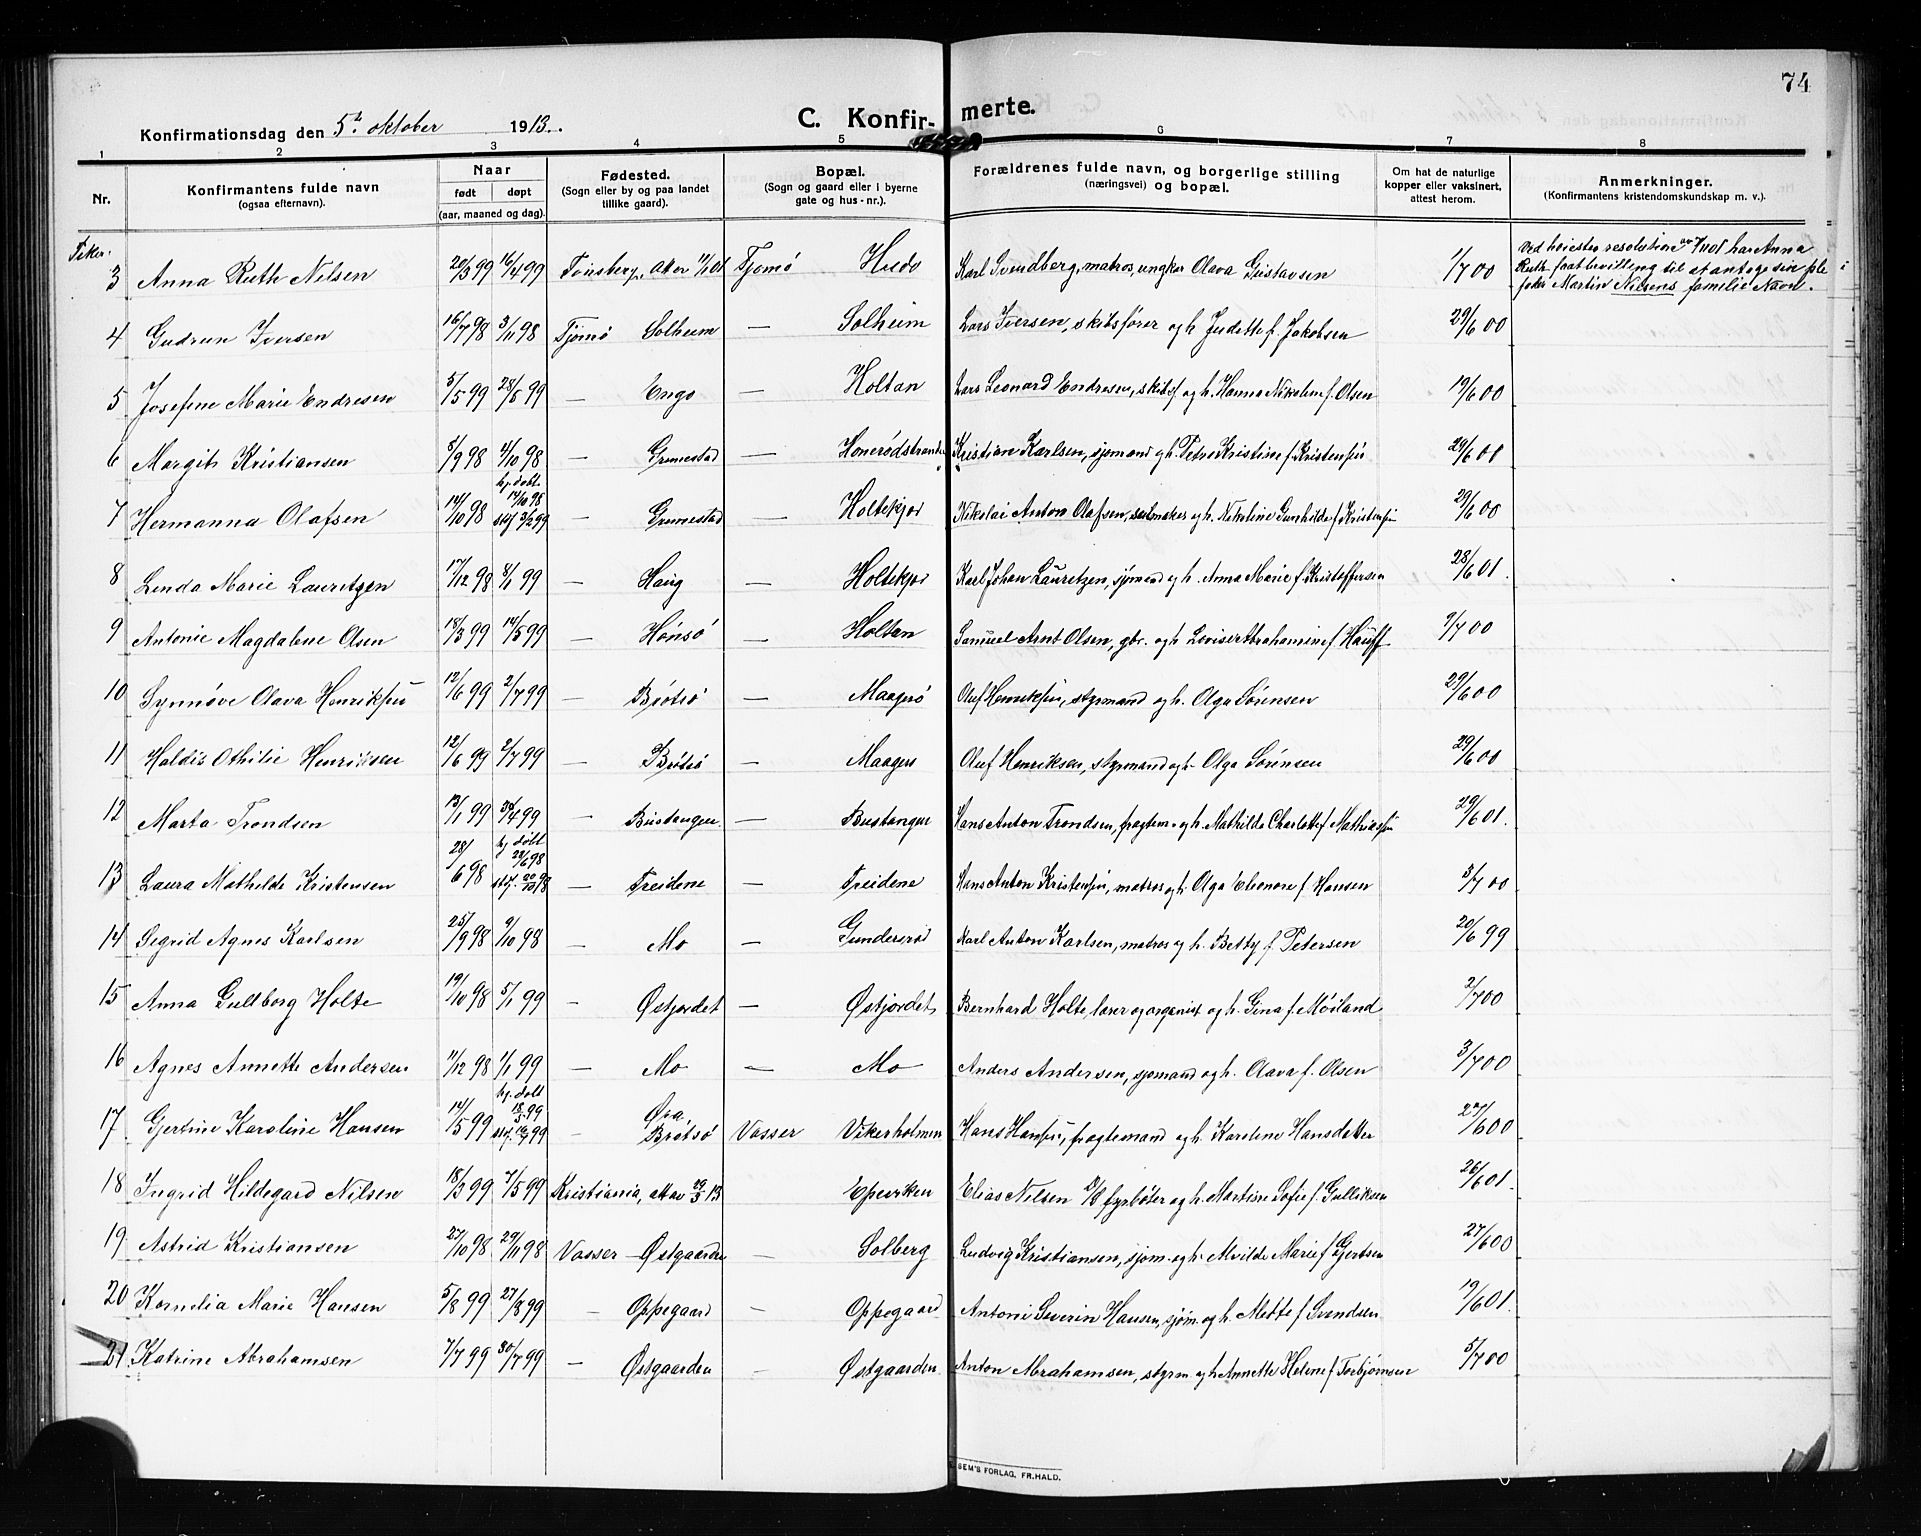 74
Konfirmationsdag den 5te oktober 1913.
C. Konfirmerte.
1 2 3 4 5 6 7 8
Nr.
Konfirmantens fulde navn
(ogsaa efternavn).
Naar
født døpt
(aar, maaned og dag).
Fødested.
(Sogn eller by og paa landet
tillike gaard).
Bopæl.
(Sogn og gaard eller i byerne
gate og hus-nr.).
Forældrenes fulde navn, og borgerlige stilling
(næringsvei) og bopæl.
Om hat de naturlige
kopper eller vaksinert,
attest herom.
Anmerkninger.
(Konfirmantens kristendomskundskap m. v.).
Piker.
3 Anna Ruth Nilsen 20/3 99 16/4 99 Tønsberg, Tjømø Hudo Karl Svendberg, matros, ungkar Olava Gustavsen 1/7 00
Ved høieste resolution har Anna
Ruth faat bevilling til at antage sin ple
Martin Nilsens familie Navn.
4 Gudrun Iversen 16/7 98 3/11 98 Tjømø Solheim — Solheim Lars Iversen, skibsfører og h. Judette f. Jakobsen 29/6 00
5 Josefine Marie Endresen 5/5 99 28/5 99 — Engo — Holtan Lars Leonard Endresen, skibsf og h. Hanna Nikoline f. Olsen 19/6 00
6 Margit Kristiansen 5/9 98 4/10 98 — Grimestad — Honerødstranden Kristian Karlsen, sjømand og h. Petra Kristine f. Kristensen 29/6 01
7 Hermanna Olafsen 14/10 98 hj. døbt 14/10 98 stadf 3/2 99 — Grimestad — Holtekjær Nikolai Anton Olafsen, seilmaker og h. Nikoline Gunhilde f Kristensen 29/6 00
8 Linda Marie Lauritzen 17/12 98 8/1 99 — Haug — Holtekjær Karl Johan Lauretzen, sjømand og h. Anna Marie f Kristoffersen 28/6 01.
9 Antonie Magdalene Olsen 18/3 99 14/5 99 — Hønsø — Holtan Samuel Arnt Olsen, gbr. og h Lovise Abrahamine f. Hauff 9/7 00
10 Synnøve Olava Henriksen 12/6 99 2/7 99 — Brøtsø — Maagerø Oluf Henriksen, styrmand og h. Olga Sørensen 29/6 00
11 Haldis Othilie Henriksen 12/6 99 2/7 99 — Brøtsø — Maagerø Oluf Henriksen, styrmand og h. Olga Sørensen 29/6 00
12 Marta Trondsen 13/1 99 30/4 99 — Bustangen — Bustangen Hans Anton Trondsen, fragtem. og h. Mathilde Charlotte f Mathiassen 29/6 01.
13 Laura Mathilde Kristensen 28/6 98 hj døbt — Treidene — Treidene Hans Anton Kristensen, matros og h. Olga Eleonore f. Hansen 3/7 00
14 Sigrid Agnes Karlsen 25/9 98 9/10 98 — Mo — Gunderød Karl Anton Karlsen, matros og h. Betty f Petersen 20/6 99
15 Anna Gullborg Holte 19/10 98 5/1 99 — Østjordet — Østjordet Bernhard Holte, lærer og organist og h. Gina f. Møiland 2/7 00
16 Agnes Annette Andersen 11/12 98 1/1 99 — Mo — Mo Anders Andersen, sjømand og h. Olava f. Olsen 3/7 00
17 Gjertine Karoline Hansen 14/5 99 hj. døbt 18/5 99 — Øra Brøtsø Vasser Vikerholmen Hans Hansen, fragtemand og h. Karoline Hansdatter 27/6 00
18 Ingrid Hildegard Nilsen 18/3 99 7/5 99 Kristiania, Epeviken Elias Nilsen fyrbøter og h. Martine Sofie f. Gulliksen 26/6 01.
19 Astrid Kristiansen 27/10 98 29/11 98 Vasser — Østgaarden — Solberg Ludvig Kristiansen, sjøm. og h. Alvilde Marie f Gjertsen 27/6 00
20 Kornelia Marie Hansen 5/8 99 27/8 99 — Oppegaard — Oppegaard Antoni Severin Hansen, sjøm. og h. Mette f. Svendsen 19/6 01.
21 Katrine Abrahamsen 7/7 99 30/7 99 — Østgaarden — Østgaarden Anton Abrahamsen, styrm og h Annette Helene f Torbjørnsen 5/7 00
SEM'S FORLAG, FR.HALD.